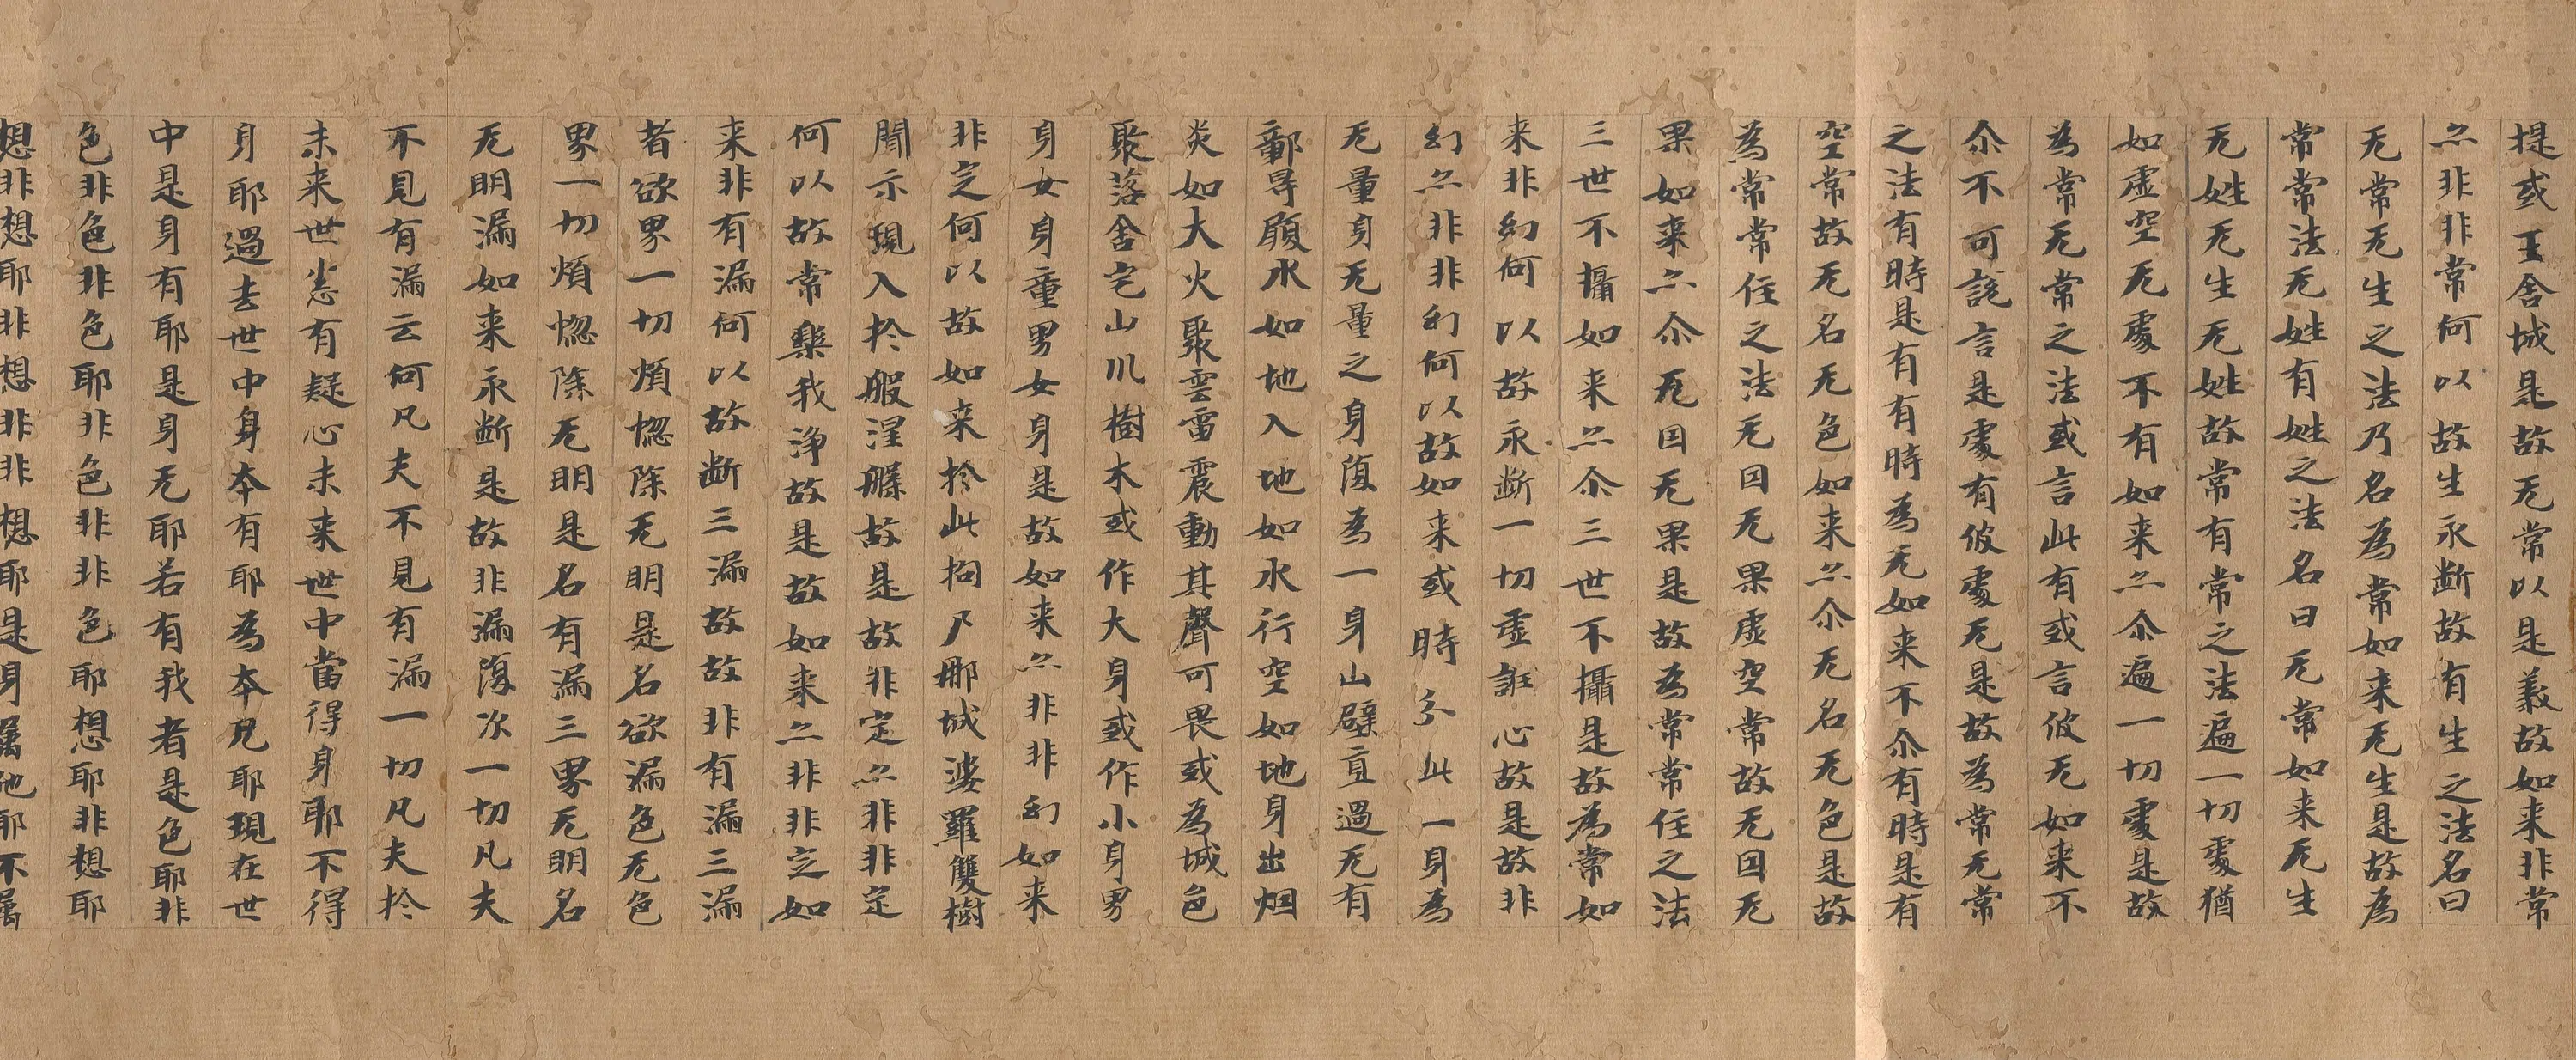 提或王舍城是故无常以是義故如来非常
亦非非常何以故生永断故有生之法名曰
无常无生之法乃名為常如来无生是故為
常常法无姓有姓之法名曰无常如来无生
无姓无生无姓故常有常之法遍一切處猶
如虛空无處不有如来亦尒遍一切處是故
為常无常之法或言此有或言彼无如来不
尒不可說言是處有彼處无是故為常无常
之法有時是有有時為无如来不尒有時是有
空常故无名无色如来亦尒无名无色是故
為常常住之法无因无果虛空常故无因无
果如来亦尒无因无果是故為常常住之法
三世不攝如来亦尒三世不攝是故為常如
来非幻何以故永断一切虛誑心故是故非
幻亦非非幻何以故如来或時分此一身為
无量身无量之身復為一身山壁直過无有
鄣㝵履水如地入地如水行空如地身出烟
炎如大火聚雲雷震動其聲可畏或為城邑
聚落舍宅山川樹木或作大身或作小身男
身女身童男女身是故如来亦非非幻如来
非定何以故如来扵此拘尸那城婆羅雙樹
聞示現入扵般涅槃故是故非定亦非非定
何以故常樂我淨故是故如来亦非非定如
来非有漏何以故断三漏故故非有漏三漏
者欲界一切煩惚除无明是名欲漏色无色
界一切煩惚除无明是名有漏三界无明名
无明漏如来永断是故非漏復次一切凡夫
不見有漏云何凡夫不見有漏一切凡夫扵
未来世悉有疑心未来世中當得身耶不得
身耶過去世中身本有耶為本无耶現在世
中是身有耶是身无耶若有我者是色耶非
色非色非色耶非色非非色耶想耶非想耶
想非想耶非想非非想耶是身屬他耶不屬